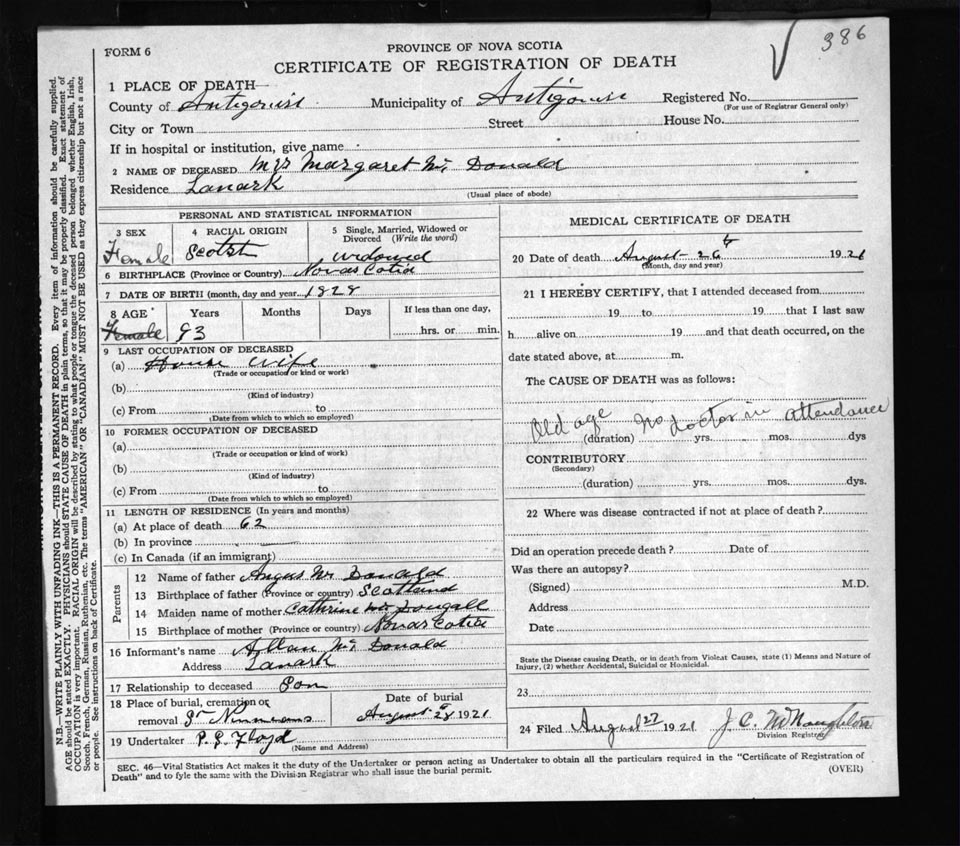 386
FORM 6
PROVINCE OF NOVA SCOTIA
CERTIFICATE OF REGISTRATION OF DEATH
1 PLACE OF DEATH
County of Antigonish Municipality of Antigonish Registered No.
(For use of Registrar General only)
City or Town Street House No.
If in hospital or institution, give name
2 NAME OF DECEASED Mrs Margaret Mc Donald
Residence Lanark
(Usual place of abode)
PERSONAL AND STATISTICAL INFORMATION
3 SEX 4 RACIAL ORIGIN 5 Single, Married, Widowed or
Divorced (Write the word)
Female Scotch widowed
6 BIRTHPLACE (Province or Country) Nova Scotia
7 DATE OF BIRTH (month, day and year 1828
8 AGE Years Months Days If less than one day,
Female 93 hrs. or min.
9 LAST OCCUPATION OF DECEASED
(a) House wife
(Trade or occupation or kind or work)
(b)
(Kind of industry)
(c) From to
(Date from which to which so employed)
10 FORMER OCCUPATION OF DECEASED
(a)
(Trade or occupation or kind of work)
(b)
(Kind of industry)
(c) From to
(Date from which to which so employed)
11 LENGTH OF RESIDENCE (In years and months)
(a) At place of death 62
(b) In province
(c) In Canada (if an immigrant)
Parents
12 Name of father Angus Mc Donald
13 Birthplace of father (Province or country) Scotland
14 Maiden name of mother Cathrine Mc Dougall
15 Birthplace of mother (Province or country) Nova Scotia
16 Informant's name Allan Mc Donald
Address Lanark
17 Relationship to deceased Son
18 Place of burial, cremation or Date of burial
removal St August 28 1921
19 Undertaker P.S. Floyd
(Name and Address)
MEDICAL CERTIFICATE OF DEATH
20 Date of death August 26th 1921
(Month, day and year)
21 I HEREBY CERTIFY, that I attended deceased from
19 to 19 that I last saw
h alive on 19 and that death occurred, on the
date stated above, at m.
The CAUSE OF DEATH was as follows:
Old age No doctor in attendance
(duration) yrs. mos. dys
CONTRIBUTORY
(Secondary)
(duration) yrs. mos. dys.
22 Where was disease contracted if not at place of death?
Did an operation precede death? Date of
Was there an autopsy?
(Signed) M.D.
Address
Date
State the Disease causing Death, or in death from Violent Causes, state (1) Means and Nature of
Injury, (2) whether Accidental, Suicidal or Homicidal.
23
24 Filed August 27 1921 J. C. McNaughton
Division Registrar
SEC. 46—Vital Statistics Act makes it the duty of the Undertaker or person acting as Undertaker to obtain all the particulars required in the "Certificate of Registration of
Death" and to fyle the same with the Division Registrar who shall issue the burial permit.
(OVER)
N.B.—WRITE PLAINLY WITH UNFADING INK—THIS IS A PERMANENT RECORD. Every item of information should be carefully supplied.
AGE should be stated EXACTLY. PHYSICIANS should STATE CAUSE OF DEATH in plain terms, so that it may be properly classified. Exact statement of
OCCUPATION is very important. RACIAL ORIGIN will be described by stating to what people or tongue the deceased person belonged whether English, Irish,
Scotch, French, German, Russian, Ruthenian, etc. The terms "AMERICAN" OR "CANADIAN" MUST NOT BE USED as they express citizenship but not a race
or people. See instructions on back of Certificate.